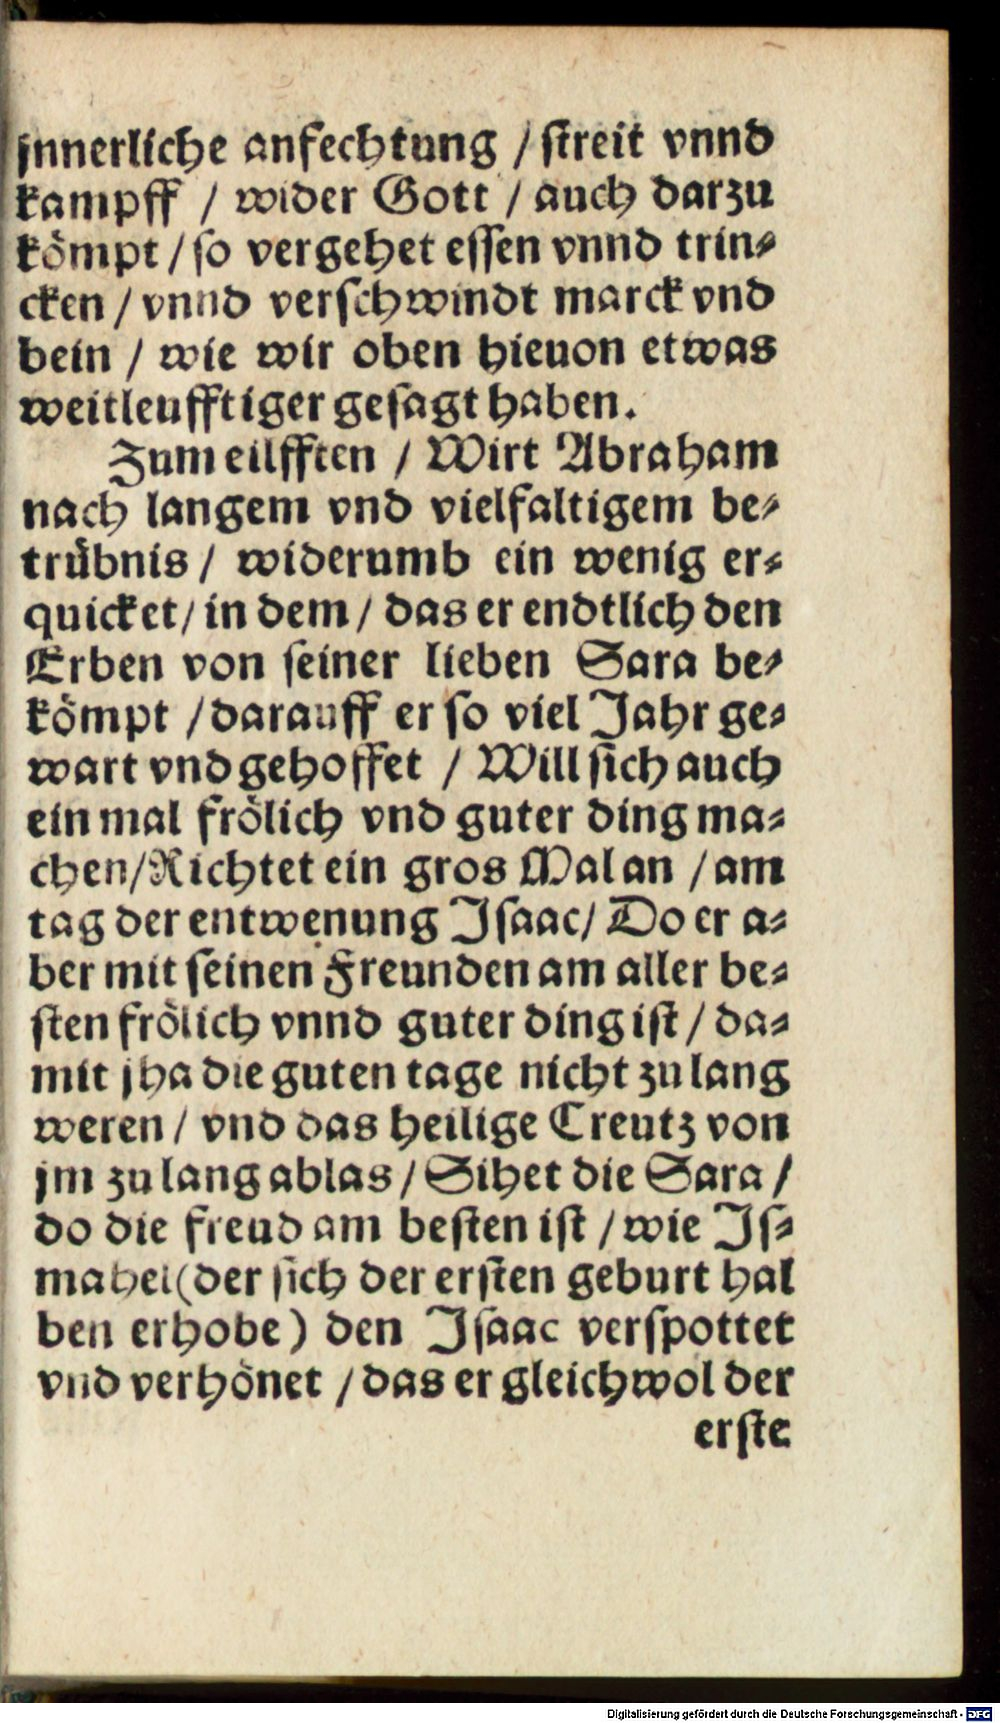 jnnerliche anfechtung / streit vnnd
kampff / wider Gott / auch darzu
kömpt / so vergehet essen vnnd trin-
cken / vnnd verschwindt marck vnd
bein / wie wir oben hieuon etwas
weitleufftiger gesagt haben.
Zum eilfften / Wirt Abraham
nach langem vnd vielfaltigem be-
trübnis / widerumb ein wenig er-
quicket / in dem / das er endtlich den
Erben von seiner lieben Sara be-
kömpt / darauff er so viel Jahr ge-
wart vnd gehoffet / Will sich auch
ein mal frölich vnd guter ding ma-
chen / Richtet ein gros Mal an / am
tag der entwenung Isaac / Do er a-
ber mit seinen Freunden am aller be-
sten frölich vnnd guter ding ist / da-
mit jha die guten tage nicht zu lang
weren / vnd das heilige Creutz von
jm zu lang ablas / Sihet die Sara /
do die freud am besten ist / wie Is-
mahel (der sich der ersten geburt hal
ben erhobe) den Isaac verspottet
vnd verhönet / das er gleichwol der
erste
Digitalisierung gefördert durch die Deutsche Forschungsgemeinschaft - DFG